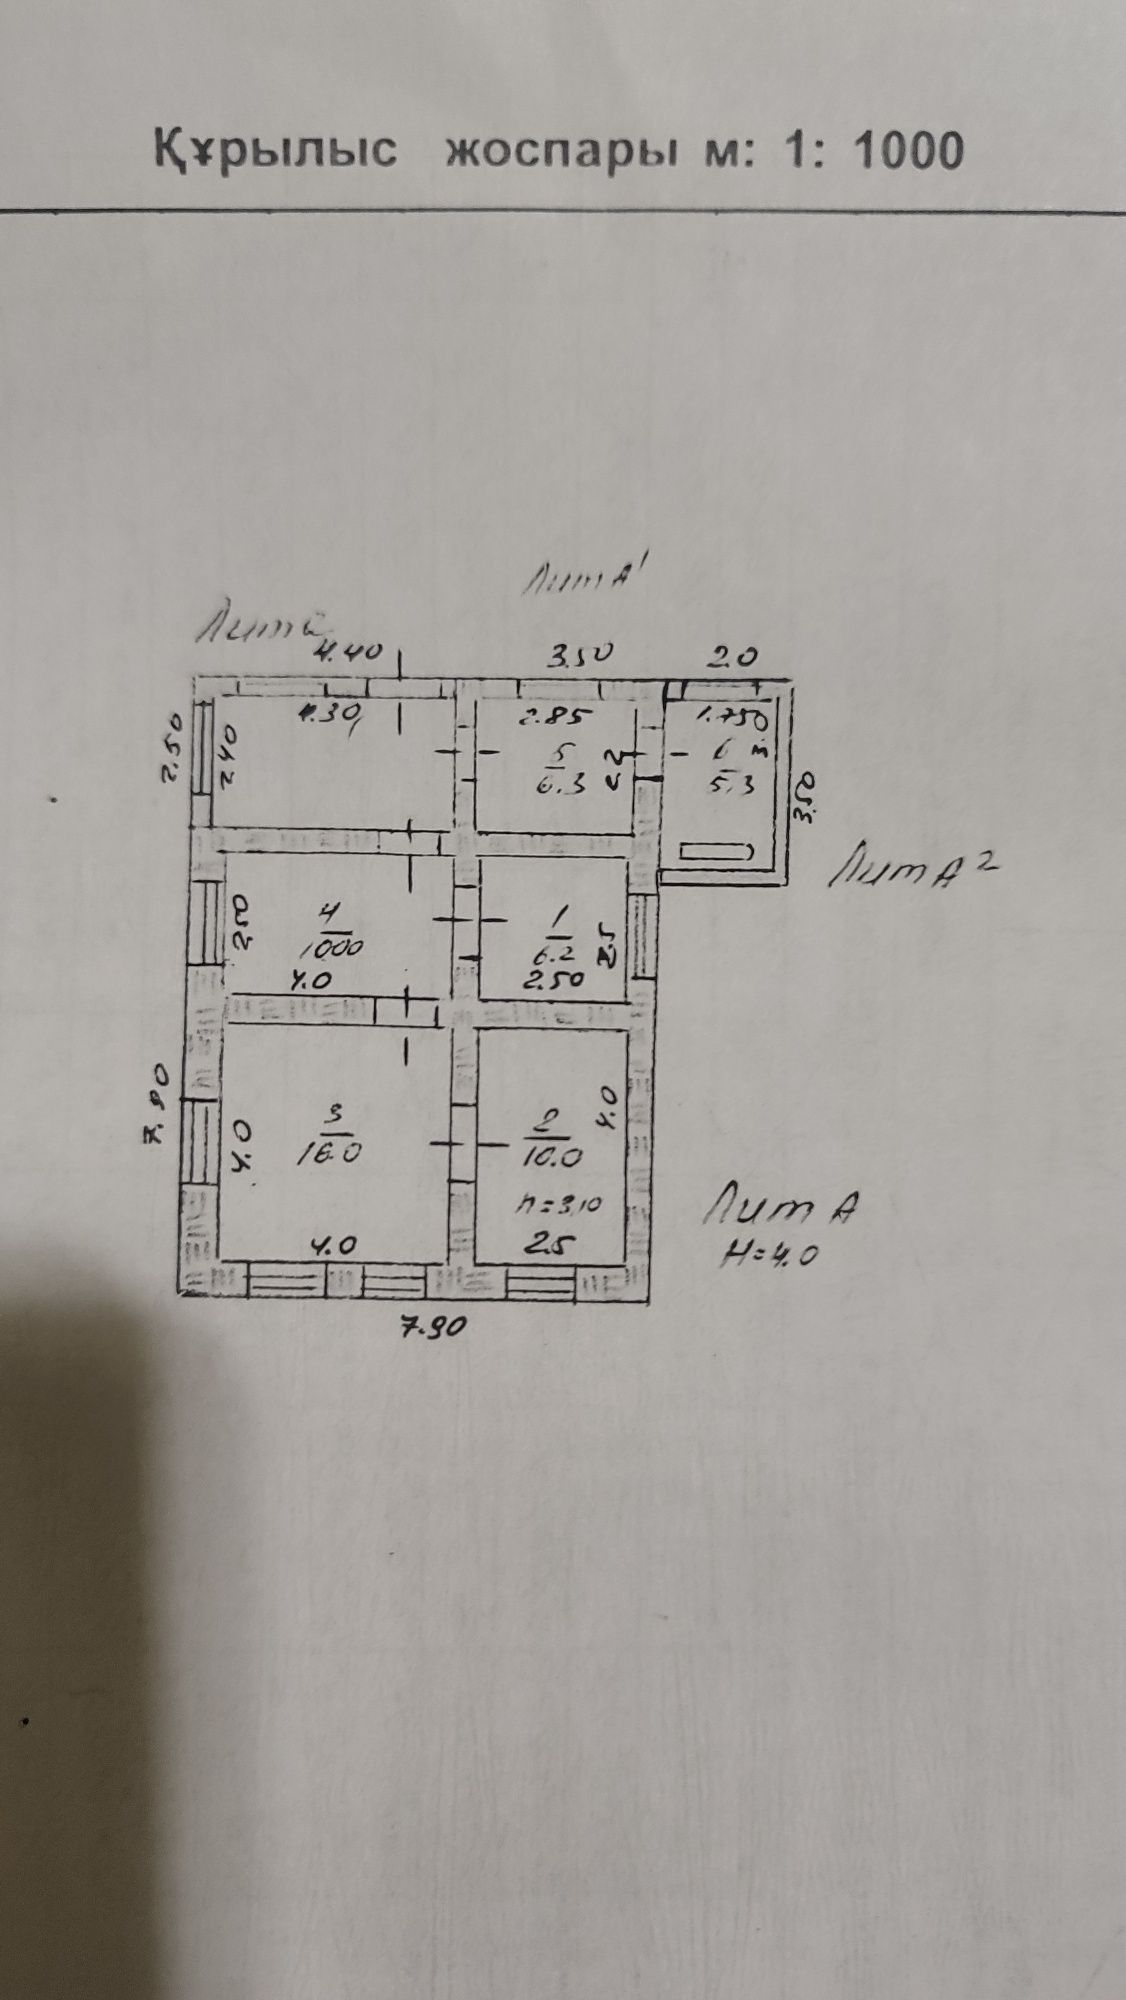 Құрылыс жоспары м: 1: 1000
Лит А¹
Лит а
4.40
3.50
2.0
4.30
2.85
1.750
2.50
2.40
5
6.3
2.2
6
5.3
3.50
Лит А²
2.50
4
1000
4.0
1
6.2
2.50
2.5
7.90
4.0
3
16.0
4.0
2
10.0
4.0
h=3,10
2.5
Лит А
H=4.0
7.90